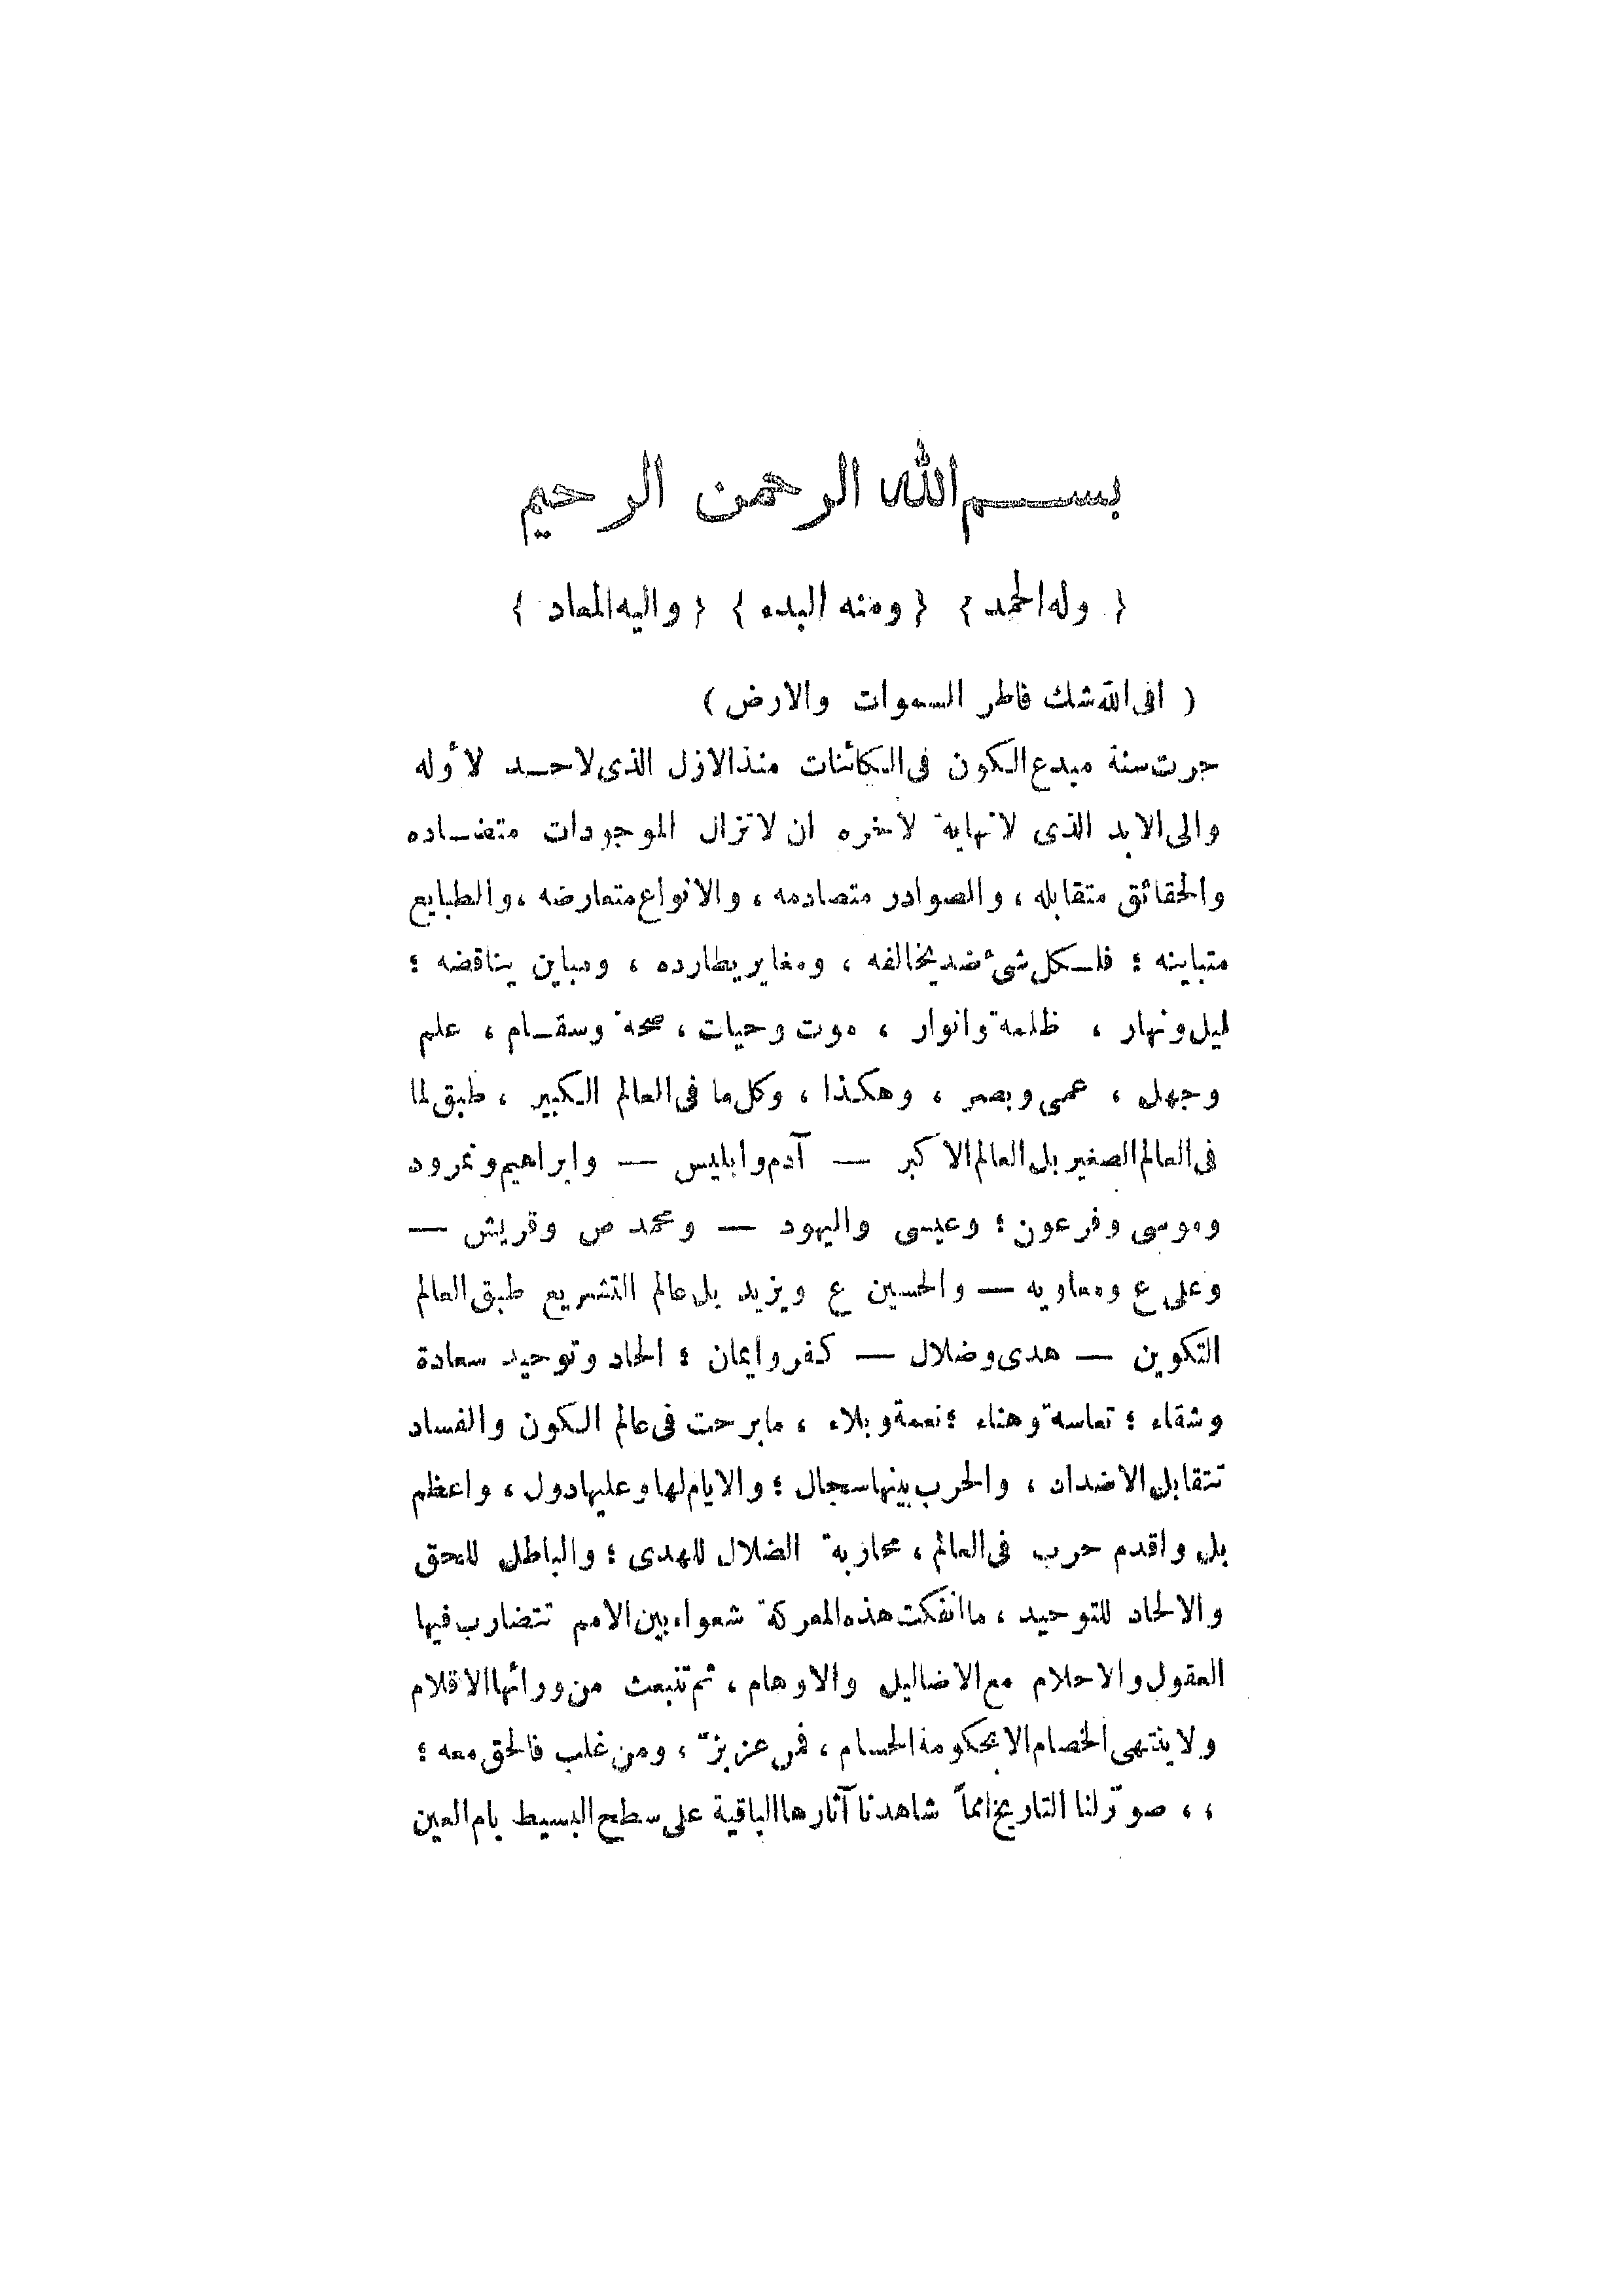 بسم الله الرحمن الرحيم
{ وله الحمد } { ومنه البدء } { واليه المعاد }
( افى الله شك فاطر السموات والارض )
جرت سنة مبدع الكون فى الكائنات منذ الازل الذى لاحد لأوله
والى الابد الذى لانهاية لآخره ان لا تزال الموجودات متضاده
والحقائق متقابله ، والصوادر متصادمه ، والانواع متعارضه ، والطبايع
متباينه ؛ فلكل شىء ضد يخالفه ، ومغاير يطارده ، ومباين يناقضه ؛
ليل ونهار ، ظلمة وانوار ، موت وحيات ، صحة وسقام ، علم
وجهل ، عمى وبصر ، وهكذا ، وكل ما فى العالم الكبير ، طبق لما
فى العالم الصغير بل العالم الاكبر — آدم وابليس — وابراهيم ونمرود
وموسى وفرعون ؛ وعيسى واليهود — ومحمد ص وقريش —
وعلى ع ومعاويه — والحسين ع ويزيد بل عالم التشريع طبق العالم
التكوين — هدى وضلال — كفر وايمان ؛ الحاد وتوحيد سعادة
وشقاء ؛ تعاسة وهناء ؛ نعمة وبلاء ، مابرحت فى عالم الكون والفساد
تتقابل الاضداد ، والحرب بينها سجال ؛ والايام لها وعليها دول ، واعظم
بل واقدم حرب فى العالم ، محاربة الضلال للهدى ؛ والباطل للحق
والالحاد للتوحيد ، ما انفكت هذه المعركة شعواء بين الامم تتضارب فيها
العقول والاحلام مع الاضاليل والاوهام ، ثم تنبعث من ورائها الاقلام
ولا ينتهى الخصام الا بحكومة الحسام ، فمن عز بزّ ، ومن غلب فالحق معه ؛
، ، صوّر لنا التاريخ امماً شاهدنا آثارها الباقية على سطح البسيط بام العين